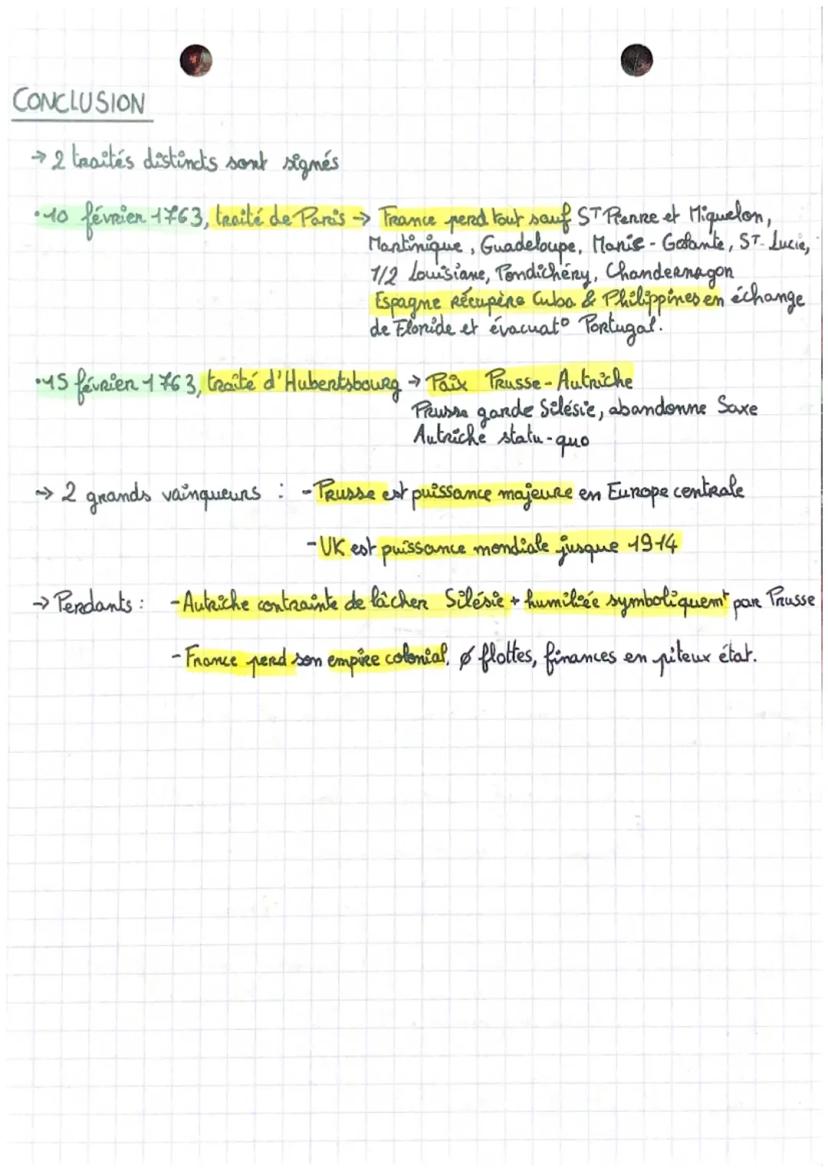 CONCLUSION
→ 2 traités distincts sont signés
• 10 février 1763, traité de Paris → France perd tout sauf ST Pierre et Miquelon,
Martinique, Guadeloupe, Marie-Galante, ST-Lucie,
1/2 Louisiane, Pondichéry, Chandernagor
Espagne récupère Cuba & Philippines en échange
de Floride et évacuat° Portugal.
• 15 février 1763, traité d'Hubertsbourg → Paix Prusse-Autriche
Prusse garde Silésie, abandonne Saxe
Autriche statu-quo
→ 2 grands vainqueurs : - Prusse est puissance majeure en Europe centrale
- UK est puissance mondiale jusque 1914
→ Perdants : - Autriche contrainte de lâcher Silésie + humiliée symboliquemt par Prusse
- France perd son empire colonial, ø flottes, finances en piteux état.